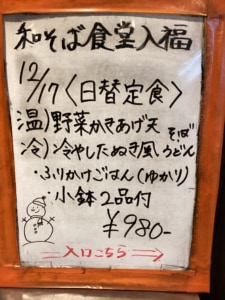 和そば食堂入福
12/17〈日替定食〉
温)野菜かきあげ天そば
冷)冷やしたぬき風うどん
・ふりかけごはん(ゆかり)
・小鉢2品付
¥980-
入口こちら